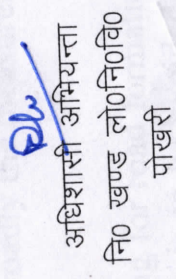 अधिशासी अभियन्ता
नि० खण्ड लो०नि०वि०
पोखरी